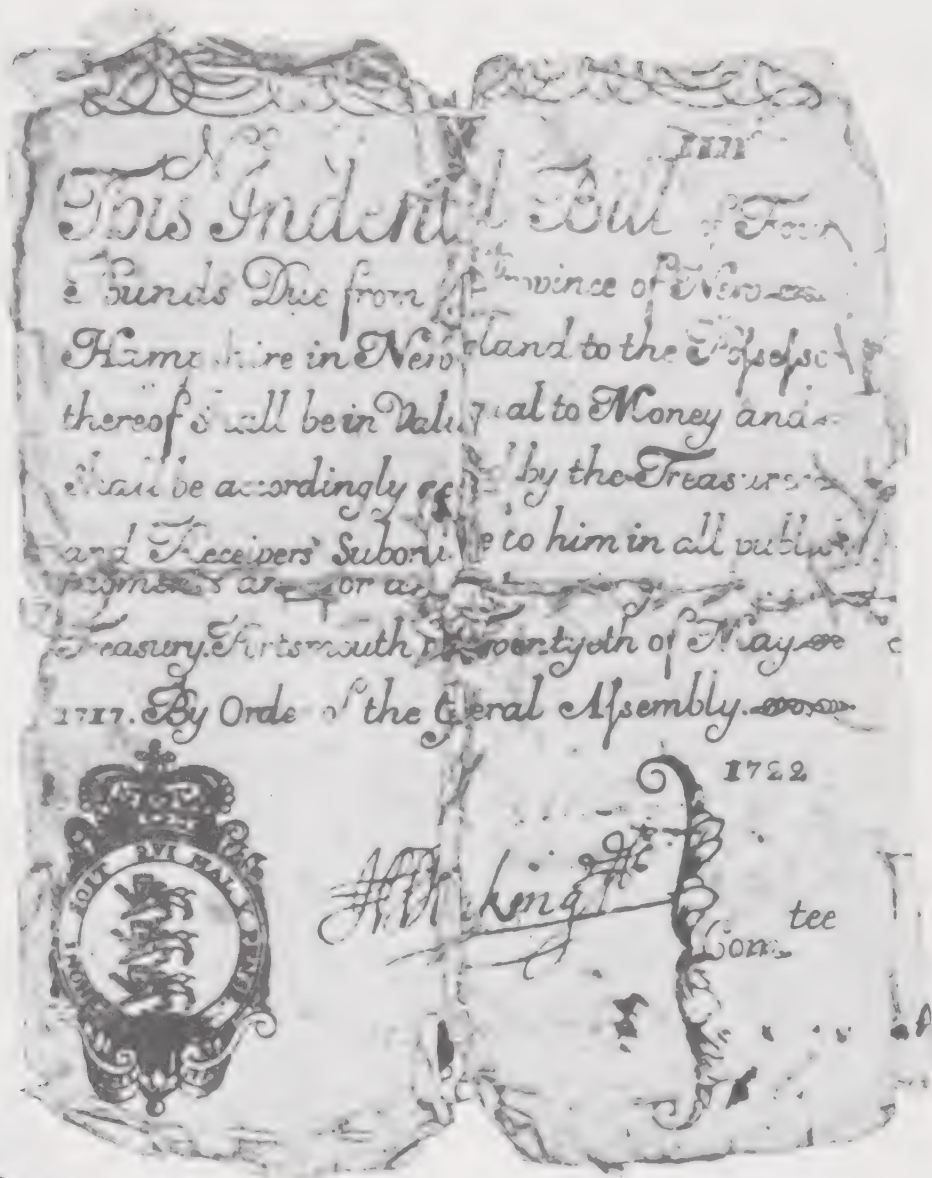 No
This Indented Bill of Four
Pounds Due from the Province of New
Hampshire in New land to the Possessor
thereof Shall be in Value qual to Money and
Shall be accordingly by the Treasurer
and Receivers Subordinate to him in all publick
payments and for any
Treasury. Portsmouth twentyeth of May
1717. By Order of the General Assembly.
1722
HONI SOIT QVI MAL Y PENSE
Comtee